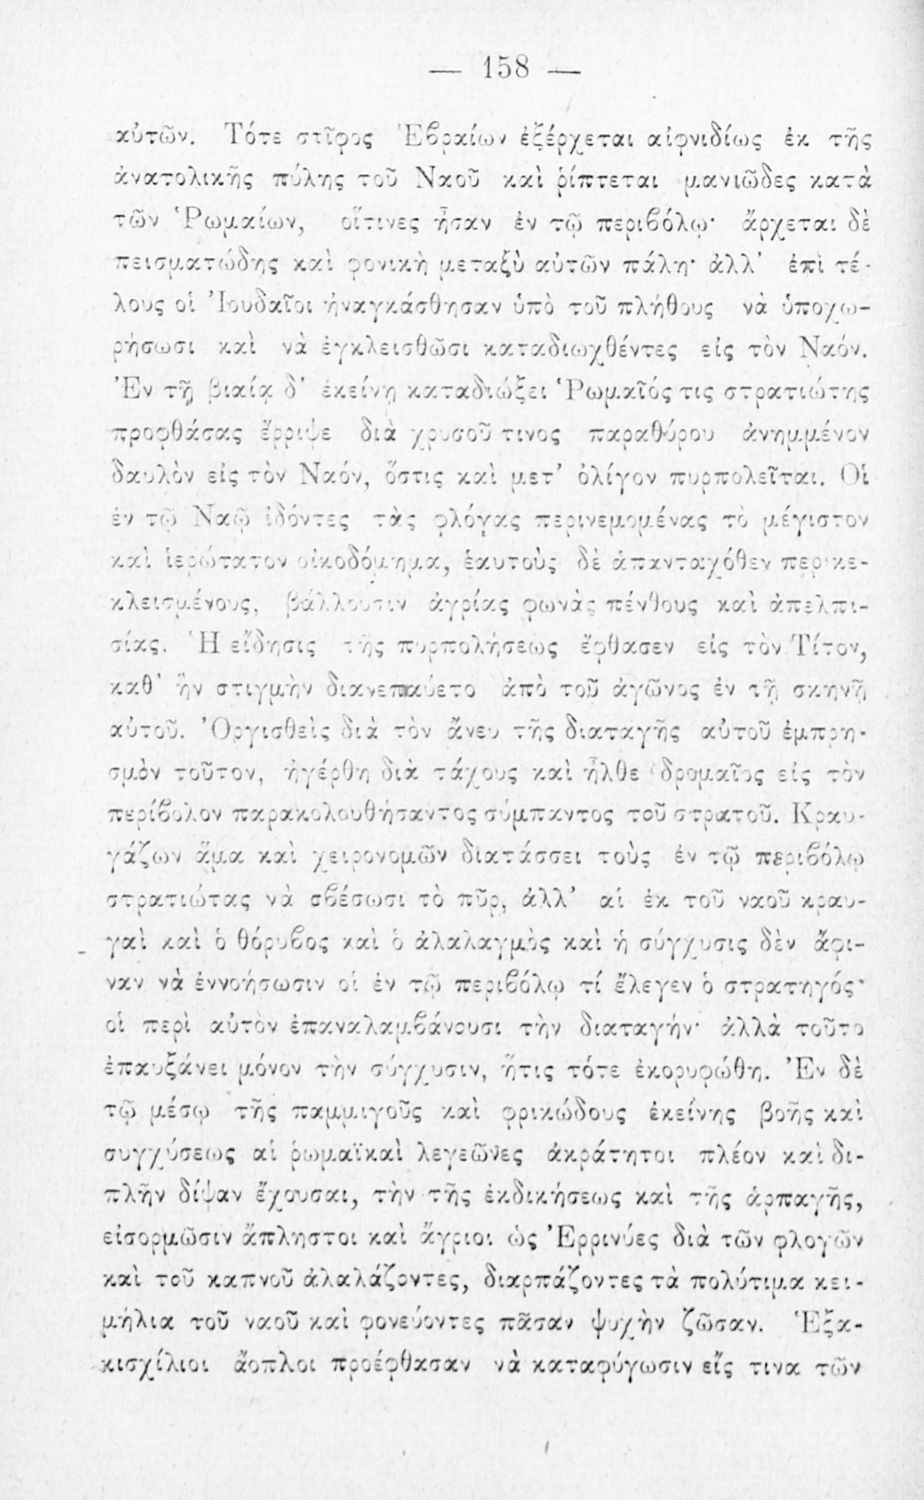 — 158 —
αὐτῶν. Τότε στῖφος Ἑβραίων ἐξέρχεται αἰφνιδίως ἐκ τῆς
ἀνατολικῆς πύλης τοῦ Ναοῦ καὶ ῥίπτεται μανιῶδες κατὰ
τῶν Ῥωμαίων, οἵτινες ἦσαν ἐν τῷ περιβόλῳ· ἄρχεται δὲ
πεισματώδης καὶ φονικὴ μεταξὺ αὐτῶν πάλη· ἀλλ' ἐπὶ τέ-
λους οἱ Ἰουδαῖοι ἠναγκάσθησαν ὑπὸ τοῦ πλήθους νὰ ὑποχω-
ρήσωσι καὶ νὰ ἐγκλεισθῶσι καταδιωχθέντες εἰς τὸν Ναόν.
Ἐν τῇ βιαίᾳ δ' ἐκείνῃ καταδιώξει Ῥωμαῖός τις στρατιώτης
προφθάσας ἔρριψε διὰ χρυσοῦ τινος παραθύρου ἀνημμένον
δαυλὸν εἰς τὸν Ναόν, ὅστις καὶ μετ' ὀλίγον πυρπολεῖται. Οἱ
ἐν τῷ Ναῷ ἰδόντες τὰς φλόγας περινεμομένας τὸ μέγιστον
καὶ ἱερώτατον οἰκοδόμημα, ἑαυτοὺς δὲ ἁπανταχόθεν περικε-
κλεισμένους, βάλλουσιν ἀγρίας φωνὰς πένθους καὶ ἀπελπι-
σίας. Ἡ εἴδησις τῆς πυρπολήσεως ἔφθασεν εἰς τὸν Τίτον,
καθ' ἣν στιγμὴν διανεπαύετο ἀπὸ τοῦ ἀγῶνος ἐν τῇ σκηνῇ
αὐτοῦ. Ὀργισθεὶς διὰ τὸν ἄνευ τῆς διαταγῆς αὐτοῦ ἐμπρη-
σμὸν τοῦτον, ἠγέρθη διὰ τάχους καὶ ἦλθε δρομαῖος εἰς τὸν
περίβολον παρακολουθήσαντος σύμπαντος τοῦ στρατοῦ. Κραυ-
γάζων ἅμα καὶ χειρονομῶν διατάσσει τοὺς ἐν τῷ περιβόλῳ
στρατιώτας νὰ σβέσωσι τὸ πῦρ, ἀλλ' αἱ ἐκ τοῦ ναοῦ κραυ-
γαὶ καὶ ὁ θόρυβος καὶ ὁ ἀλαλαγμὸς καὶ ἡ σύγχυσις δὲν ἄφι-
ναν νὰ ἐννοήσωσιν οἱ ἐν τῷ περιβόλῳ τί ἔλεγεν ὁ στρατηγός·
οἱ περὶ αὐτὸν ἐπαναλαμβάνουσι τὴν διαταγήν· ἀλλὰ τοῦτο
ἐπαυξάνει μόνον τὴν σύγχυσιν, ἥτις τότε ἐκορυφώθη. Ἐν δὲ
τῷ μέσῳ τῆς παμμιγοῦς καὶ φρικώδους ἐκείνης βοῆς καὶ
συγχύσεως αἱ ῥωμαϊκαὶ λεγεῶνες ἀκράτητοι πλέον καὶ δι-
πλῆν δίψαν ἔχουσαι, τὴν τῆς ἐκδικήσεως καὶ τῆς ἁρπαγῆς,
εἰσορμῶσιν ἄπληστοι καὶ ἄγριοι ὡς Ἐρρινύες διὰ τῶν φλογῶν
καὶ τοῦ καπνοῦ ἀλαλάζοντες, διαρπάζοντες τὰ πολύτιμα κει-
μήλια τοῦ ναοῦ καὶ φονεύοντες πᾶσαν ψυχὴν ζῶσαν. Ἑξα-
κισχίλιοι ἄοπλοι προέφθασαν νὰ καταφύγωσιν εἴς τινα τῶν